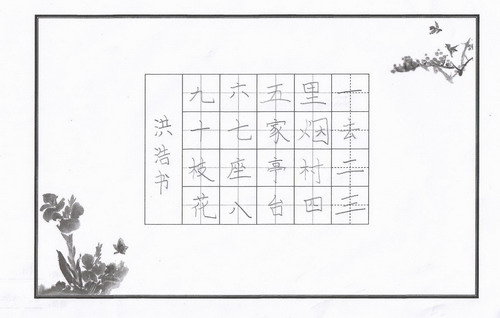 一去二三
里烟村四
五家亭台
六七座八
九十枝花
洪浩书